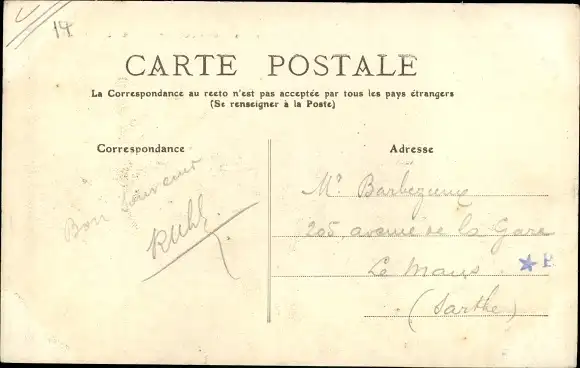 14
CARTE POSTALE
La Correspondance au recto n'est pas acceptée par tous les pays étrangers
(Se renseigner à la Poste)
Correspondance
Adresse
Bon Souvenir
Ruhl
Mr Barbezieux
205, avenue de la Gare
Le Mans
(Sarthe)
★ B